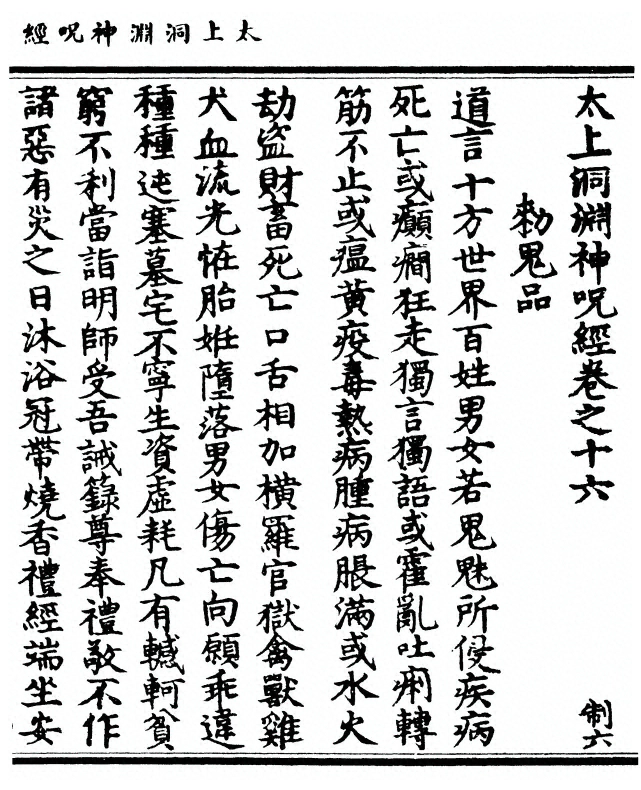 太上洞淵神呪經
太上洞淵神呪經卷之十六
制六
勑鬼品
道言十方世界百姓男女若鬼魅所侵疾病
死亡或癲癎狂走獨言獨語或霍亂吐痢轉
筋不止或瘟黃疫毒熱病腫病脹滿或水火
劫盜財畜死亡口舌相加橫羅官獄禽獸雞
犬血流光恠胎姙墮落男女傷亡向願乖違
種種迍塞墓宅不寧生資虛耗凡有轗軻貧
窮不利當詣明師受吾誡籙尊奉禮敬不作
諸惡有災之日沐浴冠帶燒香禮經端坐安